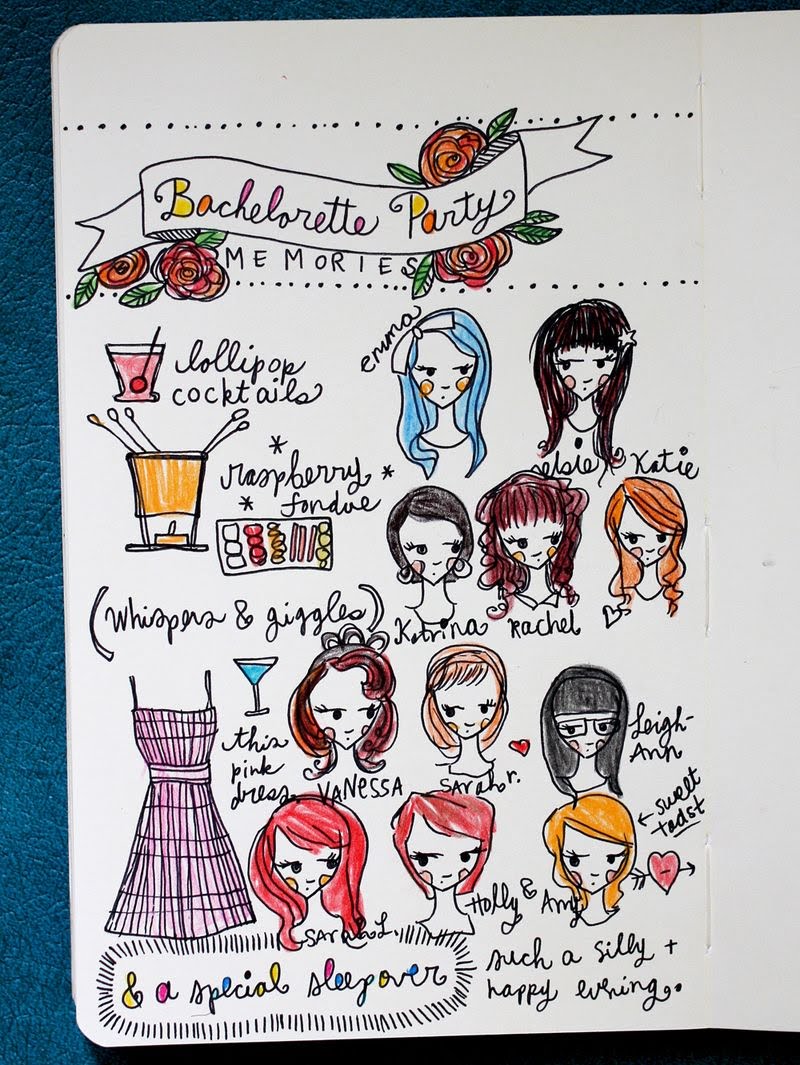 Bachelorette Party
MEMORIES
lollipop
cocktails
emma
elsie
Katie
* raspberry *
* fondue
Katrina
Rachel
(whispers & giggles)
this
pink
dress.
VANESSA
Sarah r.
Leigh-
Ann
← sweet
toast
Sarah L.
Holly & Amy
& a special sleepover
such a silly +
happy evening.